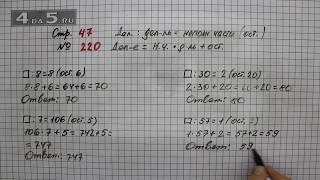 4DA5.RU
Стр. 47 Дел. : дел-ль = неполн. частн. (ост.)
№ 220 Дел-е = Н.ч. · д-ль + ост.
□ : 8 = 8 (ост. 6) □ : 30 = 2 (ост. 20)
8 · 8 + 6 = 64 + 6 = 70 2 · 30 + 20 = 60 + 20 = 80
Ответ: 70 Ответ: 80
□ : 7 = 106 (ост. 5) □ : 57 = 1 (ост. 2)
106 · 7 + 5 = 742 + 5 = 1 · 57 + 2 = 57 + 2 = 59
= 747 Ответ: 59
Ответ: 747